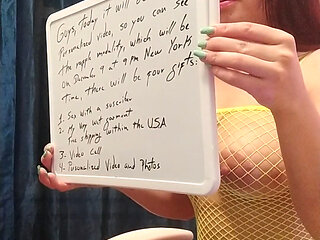 Guys, Today it will be a
Personalised video, so you can see
the raffle modality, which will be
on December 9 at 9 pm New York
Time, there will be four gifts:
1. Sex with a suscriber
2. My Very wet garment
Free shipping within the USA
3. Video Call
4. Personalised Video and Photos